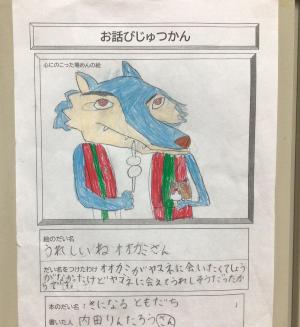 お話びじゅつかん
心にのこった場めんの絵
絵のだい名
うれしいね オオカミさん
だい名をつけたわけ オオカミがヤマネに会いたくてしょう
がなかったけどヤマネに会えてうれしそうだったか
らです。
本のだい名 きになる ともだち
書いた人 内田りんたろうさん